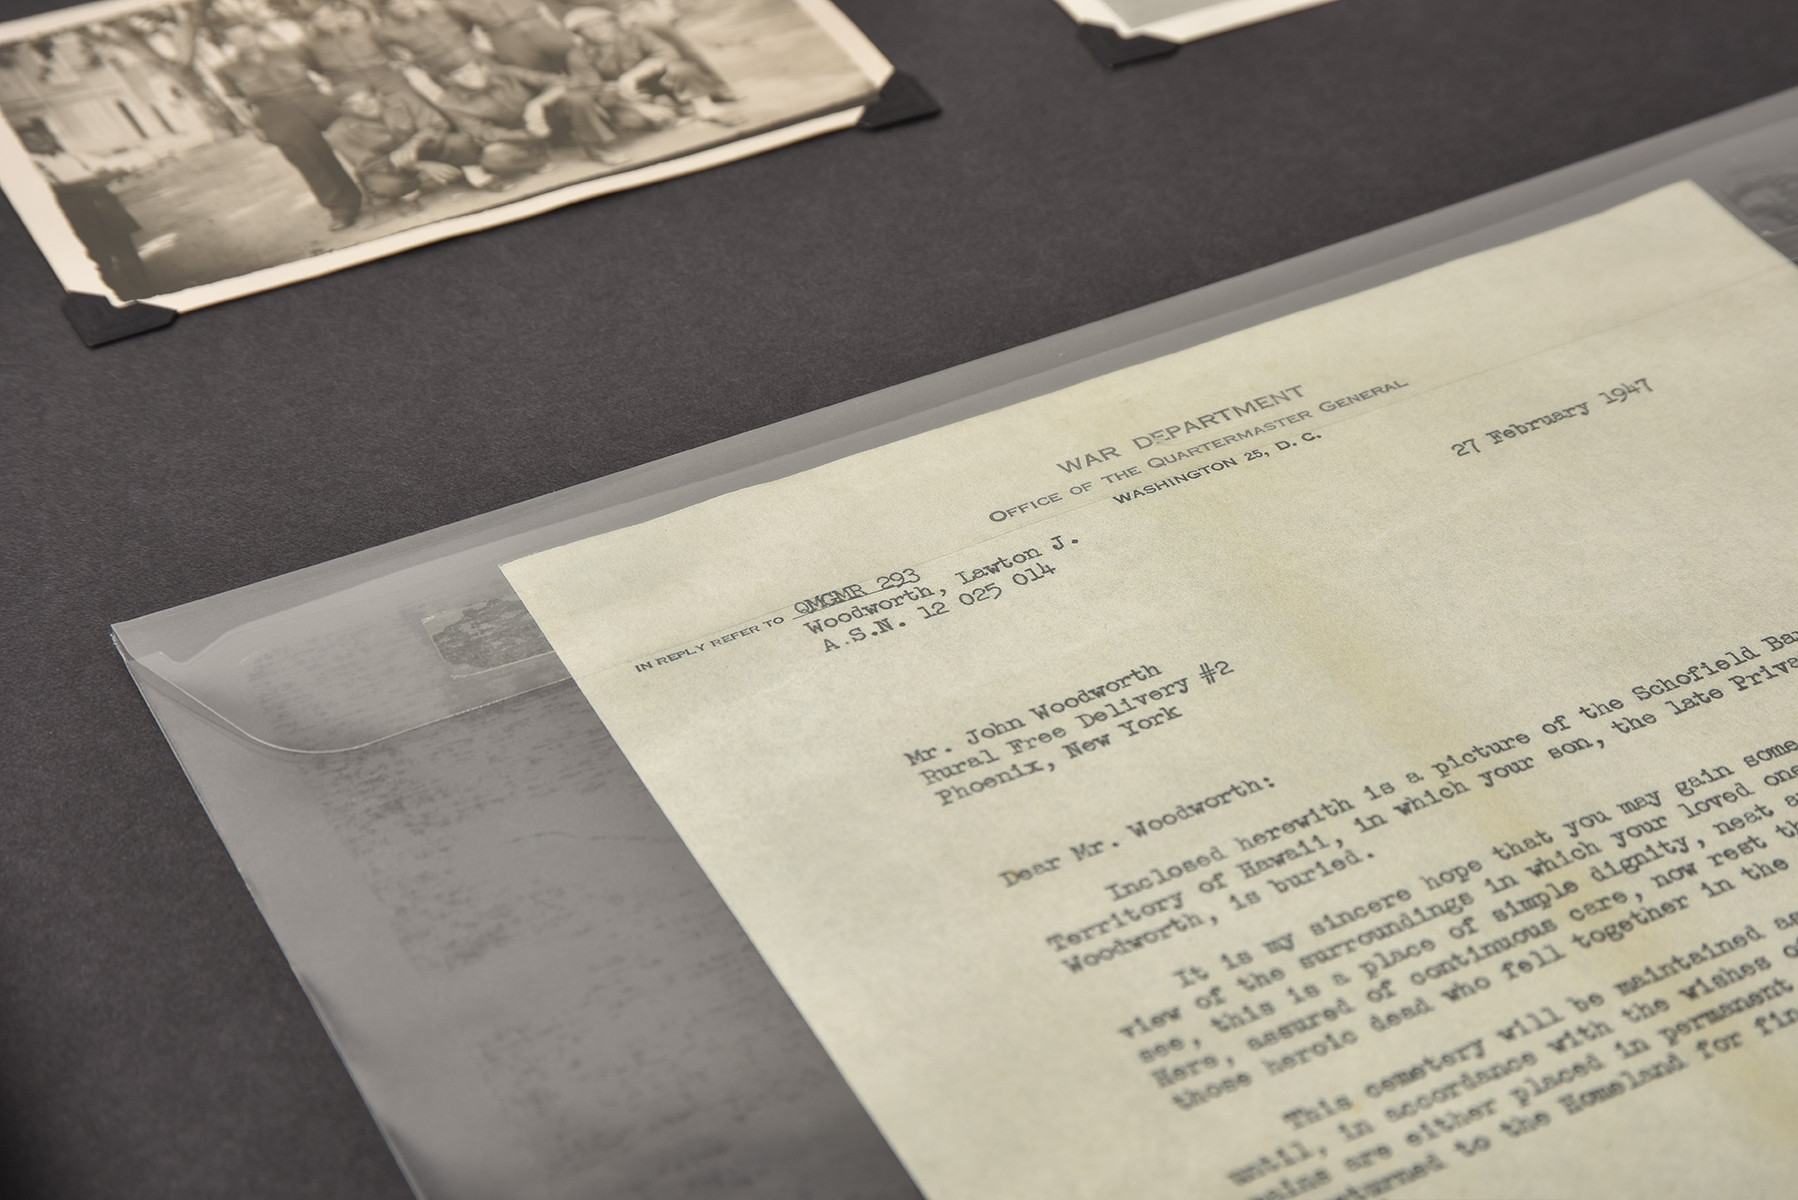 WAR DEPARTMENT
OFFICE OF THE QUARTERMASTER GENERAL
WASHINGTON 25, D. C.
27 February 1947
IN REPLY REFER TO QMGMR 293
Woodworth, Lawton J.
A.S.N. 12 025 014
Mr. John Woodworth
Rural Free Delivery #2
Phoenix, New York
Dear Mr. Woodworth:
Inclosed herewith is a picture of the Schofield
Territory of Hawaii, in which your son, the late
Woodworth, is buried.
It is my sincere hope that you may gain some
view of the surroundings in which your loved
see, this is a place of simple dignity, neat
Here, assured of continuous care, now rest
those heroic dead who fell together in the
This cemetery will be maintained
until, in accordance with the wishes
are either placed in permanent
to the Homeland for